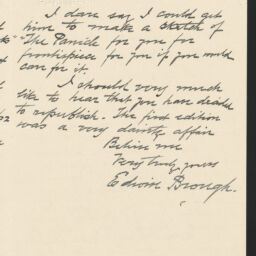 I dare say I could get
him to make a sketch of
"The Pamile for you for
frontispiece for you if you would
care for it.
I should very much
like to hear that you have decided
to republish. The first edition
was a very dainty affair
Believe me
Very truly yours
Edwin Brough.